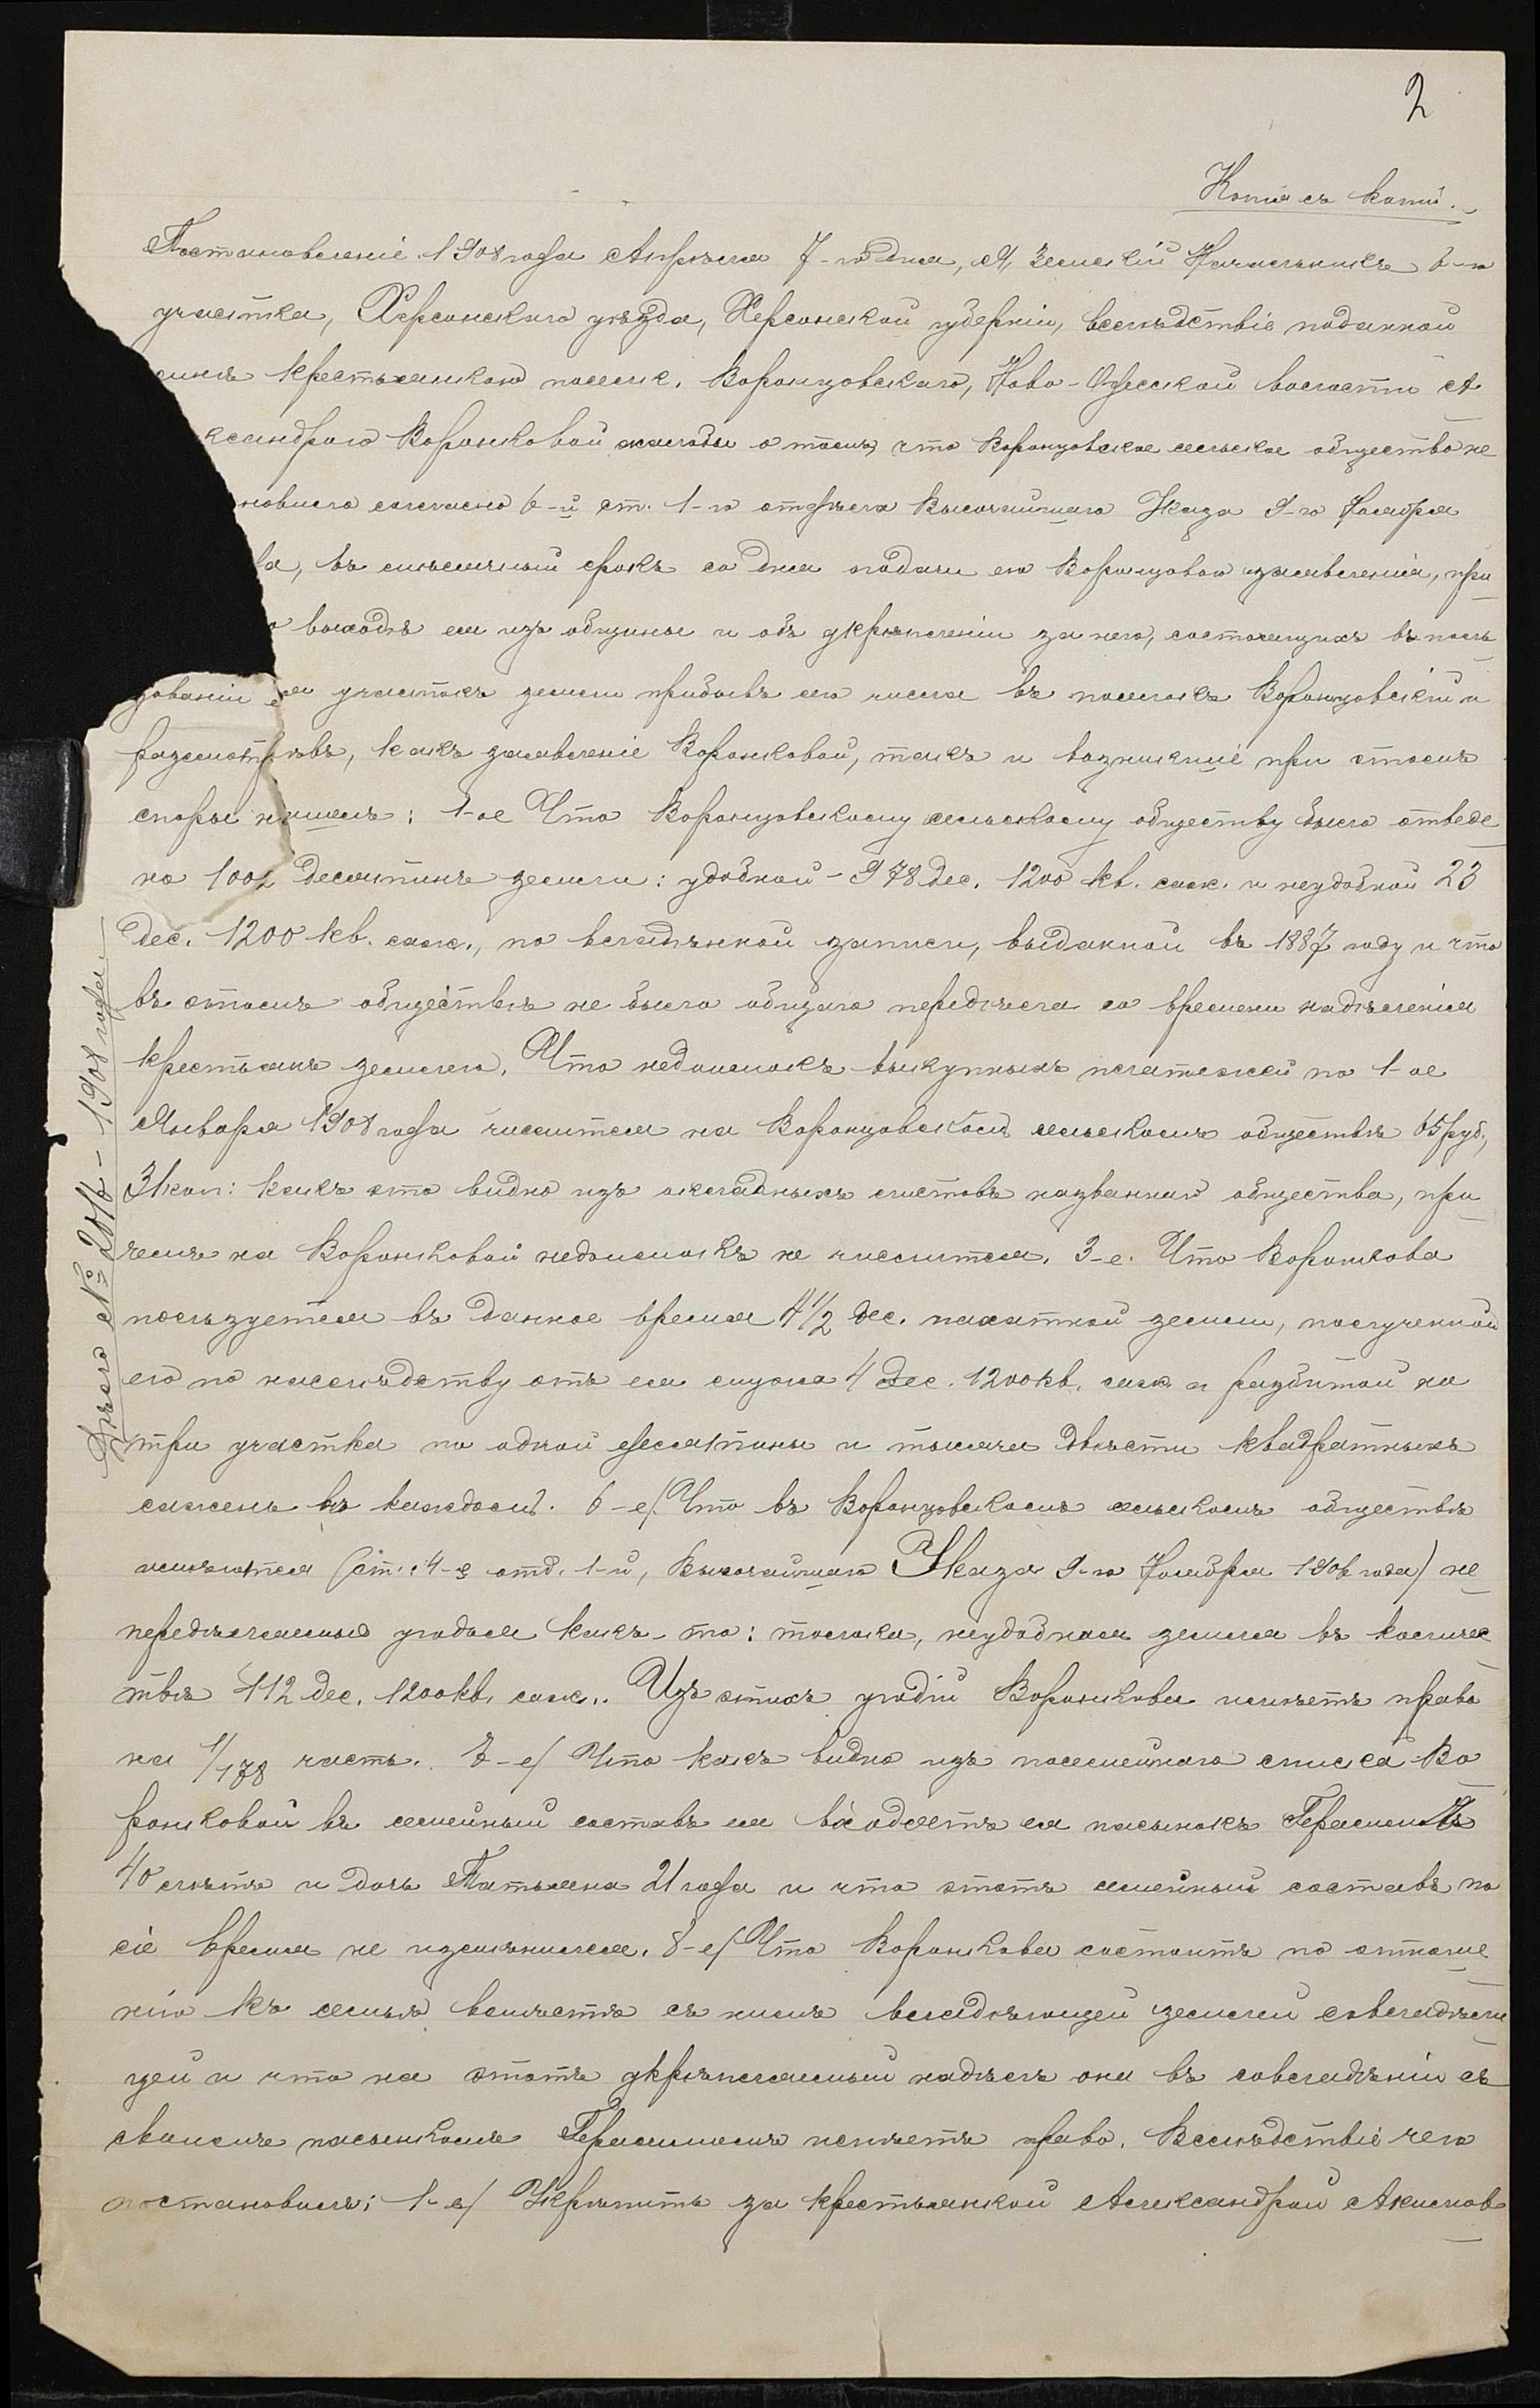 2
Копія съ копіи.
Постановленіе 1908 года Апрѣля 7-го дня, Я, Земскій Начальникъ 6-го
участка, Херсонскаго уѣзда, Херсонской губерніи, вслѣдствіе поданной
мнѣ крестьянкою поселк. Воронцовскаго, Ново-Одесской волости А
ксандрою Воронковой жалобы о томъ, что Воронцовское сельское общество не
новило согласно 6-й ст. 1-го отдѣла Высочайшаго Указа 9-го Ноября
да, въ мѣсячный срокъ со дня подачи ею Воронцовою заявленія, при
о выходѣ ея изъ общины и объ укрѣпленіи за нею, состоящихъ въ поль
зованіи ея участокъ земли прибывъ сего числа въ поселокъ Воронцовскій и
разсмотрѣвъ, какъ заявленіе Воронковой, такъ и возникшіе при этомъ
споры нашелъ: 1-ое Что Воронцовскому сельскому обществу было отведе
но 1002 десятинъ земли: удобной - 978 дес. 1200 кв. саж. и неудобной 23
дес. 1200 кв. саж., по владѣнной записи, выданной въ 1887 году и что
въ этомъ обществѣ не было общаго передѣла со времени надѣленія
крестьянъ землею. Что недоимокъ выкупныхъ платежей по 1-ое
Января 1908 года числится на Воронцовскомъ сельскомъ обществѣ 65 руб.,
31 коп: какъ это видно изъ окладныхъ листовъ названнаго общества, при
чемъ на Воронковой недоимокъ не числится. 3-е. Что Воронкова
пользуется въ данное время 4½ дес. пахатной земли, полученной
ею по наслѣдству отъ ея мужа 4 дес. 1200 кв. саж. и разбитой на
три участка по одной десятины и тысяча двѣсти квадратныхъ
сажень въ каждомъ. 6-е/. Что въ Воронцовскомъ сельскомъ обществѣ
имѣются (ст.: 4-я отд. 1-й, Высочайшаго Указа 9-го Ноября 1906 года) не
передѣляемыя угодья какъ-то: толока, неудобная земля въ количес
твѣ 112 дес. 1200 кв. саж.. Изъ этихъ угодій Воронкова имѣетъ право
на 1/178 часть. 7-е/ Что какъ видно изъ посемейнаго списка Во
ронковой въ семейный составъ ея входятъ ея пасынокъ Герасимъ
40 лѣтъ и дочь Татьяна 21 года и что этотъ семейный составъ по
сіе время не измѣнился. 8-е/ Что Воронкова состоитъ по отноше
нію къ семьѣ вмѣстѣ съ нимъ владѣющей землей совладѣли
цей и что на этотъ укрѣпляемый надѣлъ она въ совладѣніи съ
своимъ пасынкомъ Герасимомъ имѣетъ право. Вслѣдствіе чего
постановилъ: 1-е/ Укрѣпить за крестьянкой Александрой Акимов
Дѣло № 2017 - 1908 года.